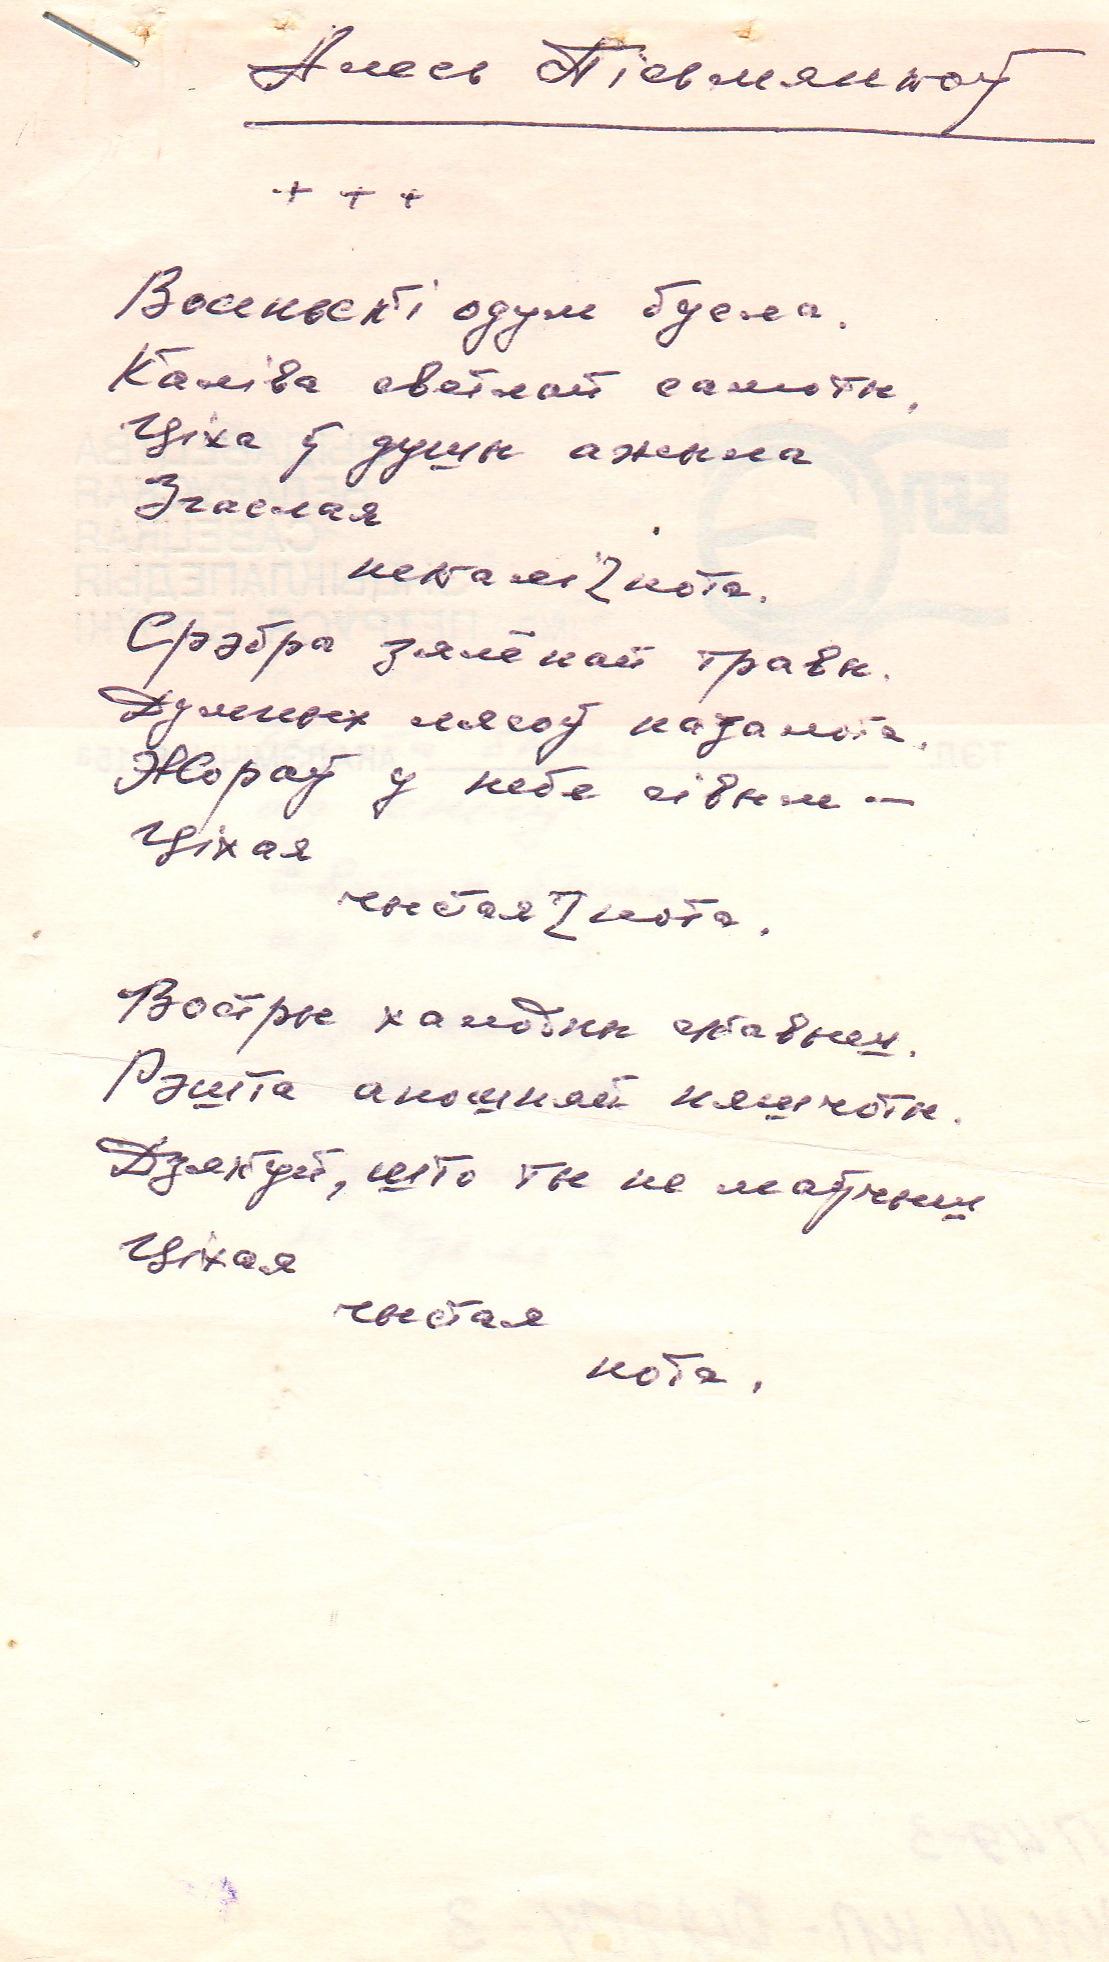 Алесь Пісьмянкоў
+ + +
Восеньскі одум бусла.
Каліва светлай самоты.
Ціха ў душы ажыла
Згаслая
некалі нота.
Срэбра зялёнай травы.
Думных лясоў пазалота.
Жораў у небе сівым —
Ціхая
чыстая нота.
Востры халодны скавыш.
Рэшта апошняй пяшчоты.
Дзякуй, што ты не маўчыш
Ціхая
чыстая
нота.